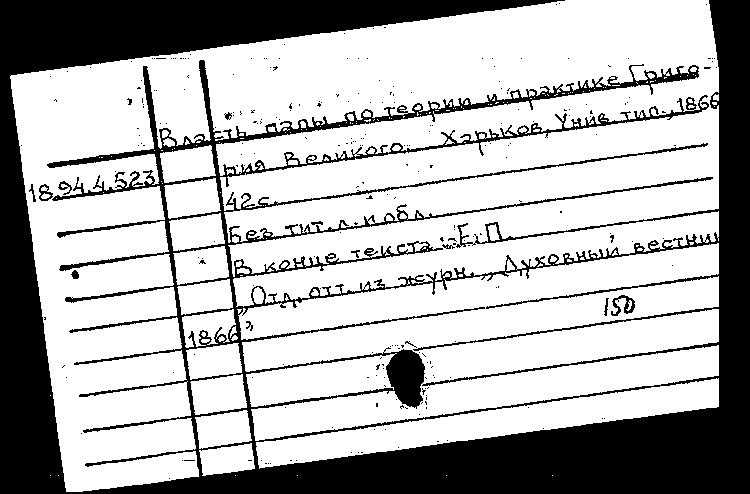 Власть папы по теории и практике Григо-
рия Великого. Харьков, Унив. тип., 1866
18.94.4.523
42с.
Без тит. л. и обл.
В конце текста: Е.П.
„Отд. отт. из журн. „Духовный вестник
1866”
150